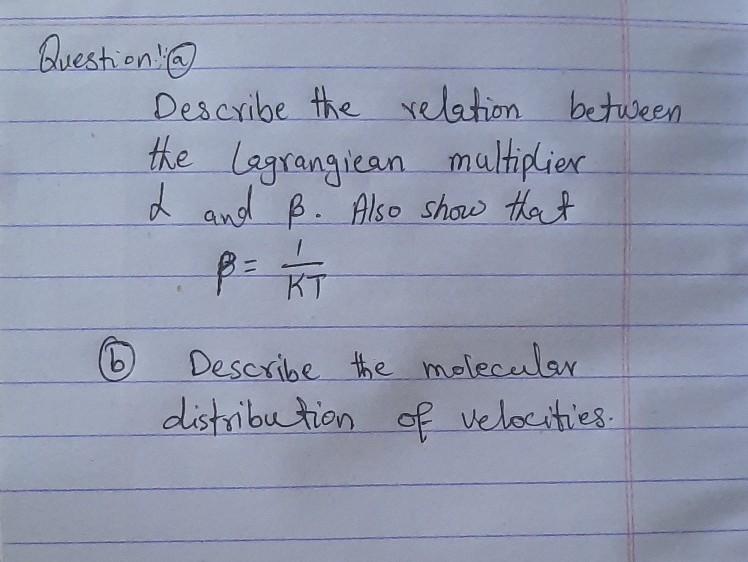 Question: (a)
Describe the relation between
the Lagrangiean multiplier
α and β. Also show that
β = 1/KT
(b) Describe the molecular
distribution of velocities.